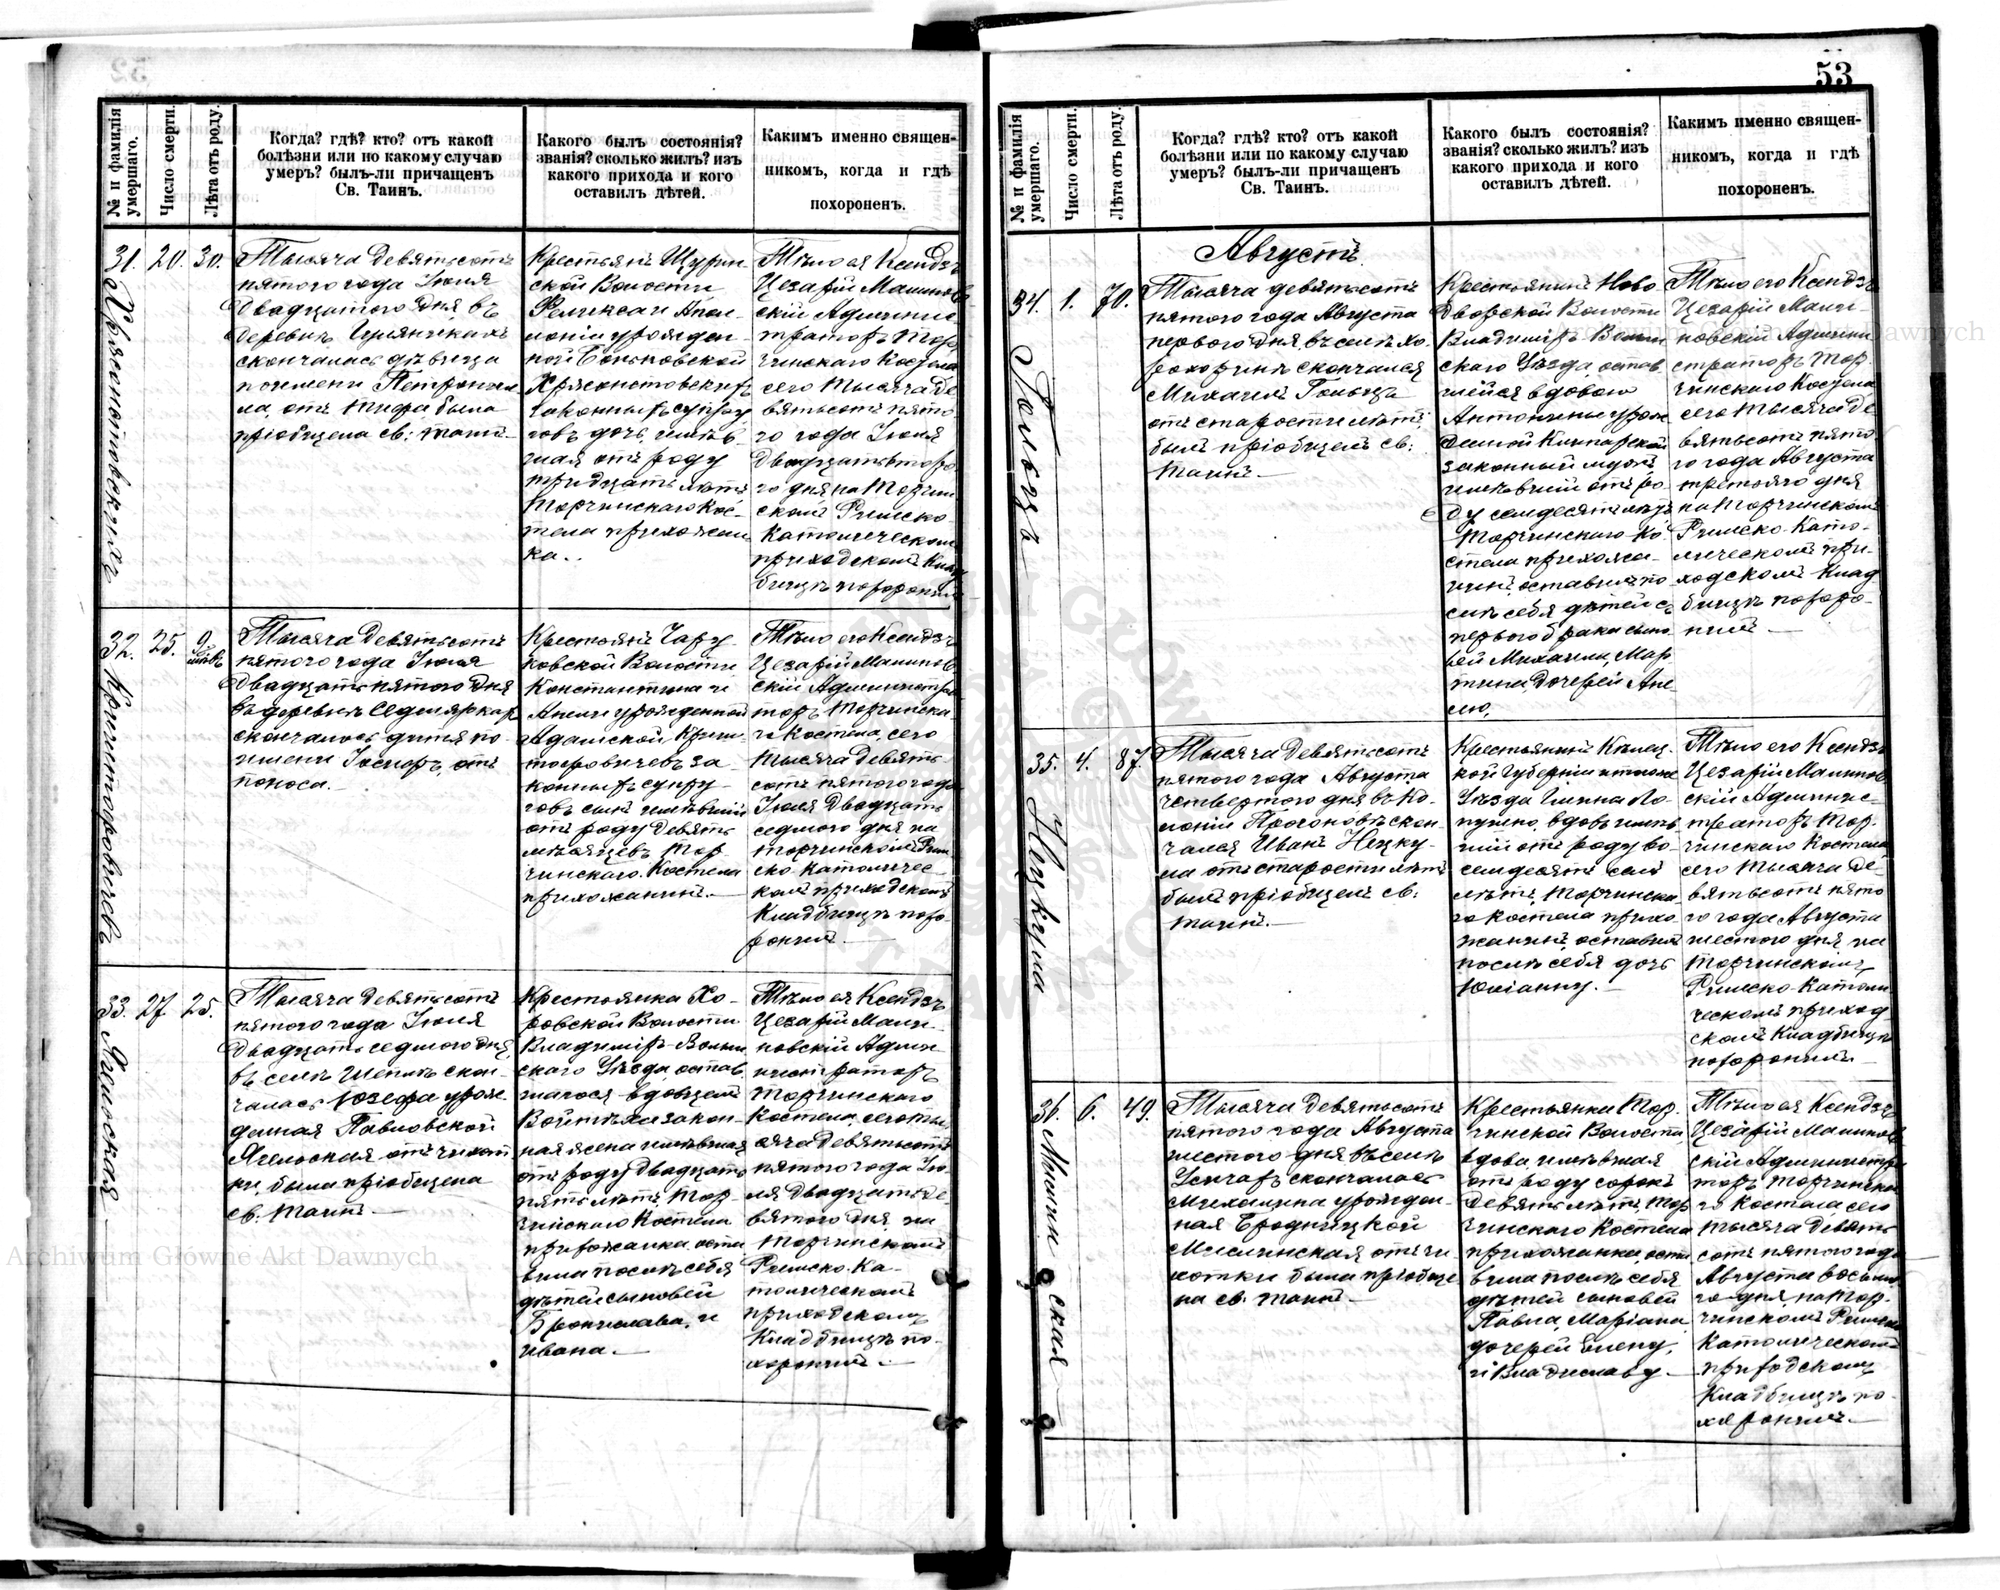 53
№ и фамилія умершаго.
Число смерти.
Лѣта отъ роду.
Когда? гдѣ? кто? отъ какой
болѣзни или по какому случаю
умеръ? былъ-ли причащенъ
Св. Таинъ.
Какого былъ состоянія?
званія? сколько жилъ? изъ
какого прихода и кого
оставилъ дѣтей.
Какимъ именно священ-
никомъ, когда и гдѣ
похороненъ.
31.
20.
30.
Тысяча девятьсотъ
пятого года Іюля
двадцатого дня въ
деревнѣ
скончалась дѣвица
по имени Петронел-
ла, отъ тифа была
пріобщена св: таинъ
Крестьянъ Щурин-
ской Волости
Феликса и Апол-
лоніи урожден-
ной
законныхъ супру
говъ дочь, имѣв-
шая отъ роду
тридцать лѣтъ
Торчинскаго Кос-
тела прихожан
ка.
Тѣло ея Ксендзъ
Цезарій Малинов
скій Админис-
траторъ Тор
чинскаго Костела
сего тысяча де
вятьсотъ пято-
го года Іюля
двадцать второ
го дня на Торчин
скомъ Римско
Католическомъ
приходскомъ Клад
бищѣ похоронилъ
32.
25.
9.
Криштофоровичевъ
Тысяча девятьсотъ
пятого года Іюля
двадцать пятого дня
въ деревнѣ Седмяркахъ
скончалось дитя по
имени Іосифъ, отъ
поноса.
Крестьянъ Чару
ковской Волости
Константина и
Анели урожденной
Адамской,
законныхъ супру
говъ сынъ имѣвшій
отъ роду девять
мѣсяцевъ Тор
чинскаго Костела
прихожанинъ.
Тѣло его Ксендзъ
Цезарій Малинов
скій Администра
торъ Торчинска
го Костела, сего
тысяча девять
сотъ пятого года
Іюля двадцать
седмого дня на
Торчинскомъ Рим
ско Католичес-
комъ приходскомъ
Кладбищѣ похо
ронилъ.
33.
27.
25.
Тысяча девятьсотъ
пятого года Іюля
двадцать седмого дня
въ селѣ Шепелѣ скон-
чалась Юзефа урож-
денная Павловской
отъ чахот
ки, была пріобщена
св. Таинъ
Крестьянка Хо-
ровской Волости
Владиміръ-Волын
скаго Уѣзда, остав
шагося вдовцемъ
Войтѣха закон-
ная жена имѣвшая
отъ роду двадцать
пять лѣтъ Тор-
чинскаго Костела
прихожанка, оста
вила послѣ себя
дѣтей сыновей
Бронислава, и
Ивана.
Тѣло ея Ксендзъ
Цезарій Мали-
новскій Адми-
нистраторъ
Торчинскаго
Костела, сего ты
сяча девятьсотъ
пятого года Ію-
ля двадцать де-
вятого дня, на
Торчинскомъ
Римско-Ка-
толическомъ
приходскомъ
Кладбищѣ по-
хоронилъ.
№ и фамилія умершаго.
Число смерти.
Лѣта отъ роду.
Когда? гдѣ? кто? отъ какой
болѣзни или по какому случаю
умеръ? былъ-ли причащенъ
Св. Таинъ.
Какого былъ состоянія?
званія? сколько жилъ? изъ
какого прихода и кого
оставилъ дѣтей.
Какимъ именно священ-
никомъ, когда и гдѣ
похороненъ.
Августъ
34.
1.
70.
Тысяча девятьсотъ
пятого года Августа
первого дня, въ селѣ Хо-
рохоринѣ скончался
Михаилъ
отъ старости лѣтъ
былъ пріобщенъ св:
таинъ.
Крестьянинъ Ново-
дворской Волости
Владиміръ Волын
скаго Уѣзда, остав
шейся вдовою
Антонины урож
денной
законный мужъ
имѣвшій отъ ро-
ду семдесятъ лѣтъ
Торчинскаго Ко-
стела прихожа-
нинъ, оставилъ по
слѣ себя дѣтей съ
первого брака сыно
вей Михаила, Мар
тина дочерей Ане
лю.
Тѣло его Ксендзъ
Цезарій Мали-
новскій Админи
страторъ Тор-
чинскаго Костела
сего тысяча де
вятьсотъ пято-
го года Августа
третьяго дня
на Торчинскомъ
Римско-Като-
лическомъ при-
ходскомъ Клад
бищѣ похоро-
нилъ
35.
4.
87.
Нецкула
Тысяча девятьсотъ
пятого года Августа
четвертого дня въ Ко-
лоніи скон-
чался Иванъ Нецку-
ла отъ старости лѣтъ
былъ пріобщенъ св:
таинъ.
Крестьянинъ Кѣлец-
кой Губерніи
Уѣзда Гмина Ло-
пушно, вдовъ имѣв
шій отъ роду во-
семдесятъ семь
лѣтъ, Торчинска
го костела прихо
жанинъ, оставилъ
послѣ себя дочь
Юліанну.
Тѣло его Ксендзъ
Цезарій Малинов
скій Админис-
траторъ Тор-
чинскаго Костела
сего тысяча де-
вятьсотъ пято
го года Августа
шестого дня, на
Торчинскомъ
Римско-Католи
ческомъ приход
скомъ Кладбищѣ
похоронилъ
36.
6.
49.
Тысяча девятьсотъ
пятого года Августа
шестого дня въ селѣ
скончалась
Михалина урожден-
ная Бродницкой
отъ ча
хотки была пріобще
на св. таинъ
Крестьянка Тор-
чинской Волости
вдова, имѣвшая
отъ роду сорокъ
девять лѣтъ Тор
чинскаго Костела
прихожанка, оста
вила послѣ себя
дѣтей сыновей
Павла, Маріана,
дочерей Елену,
и Владиславу
Тѣло ея Ксендзъ
Цезарій Малинов
скій Администра
торъ Торчинска
го Костела, сего
тысяча девять
сотъ пятого года
Августа восьмо
го дня, на Тор-
чинскомъ Римско
Католическомъ
приходскомъ
Кладбищѣ по-
хоронилъ.
Archiwum Główne Akt Dawnych
Archiwum Główne Akt Dawnych